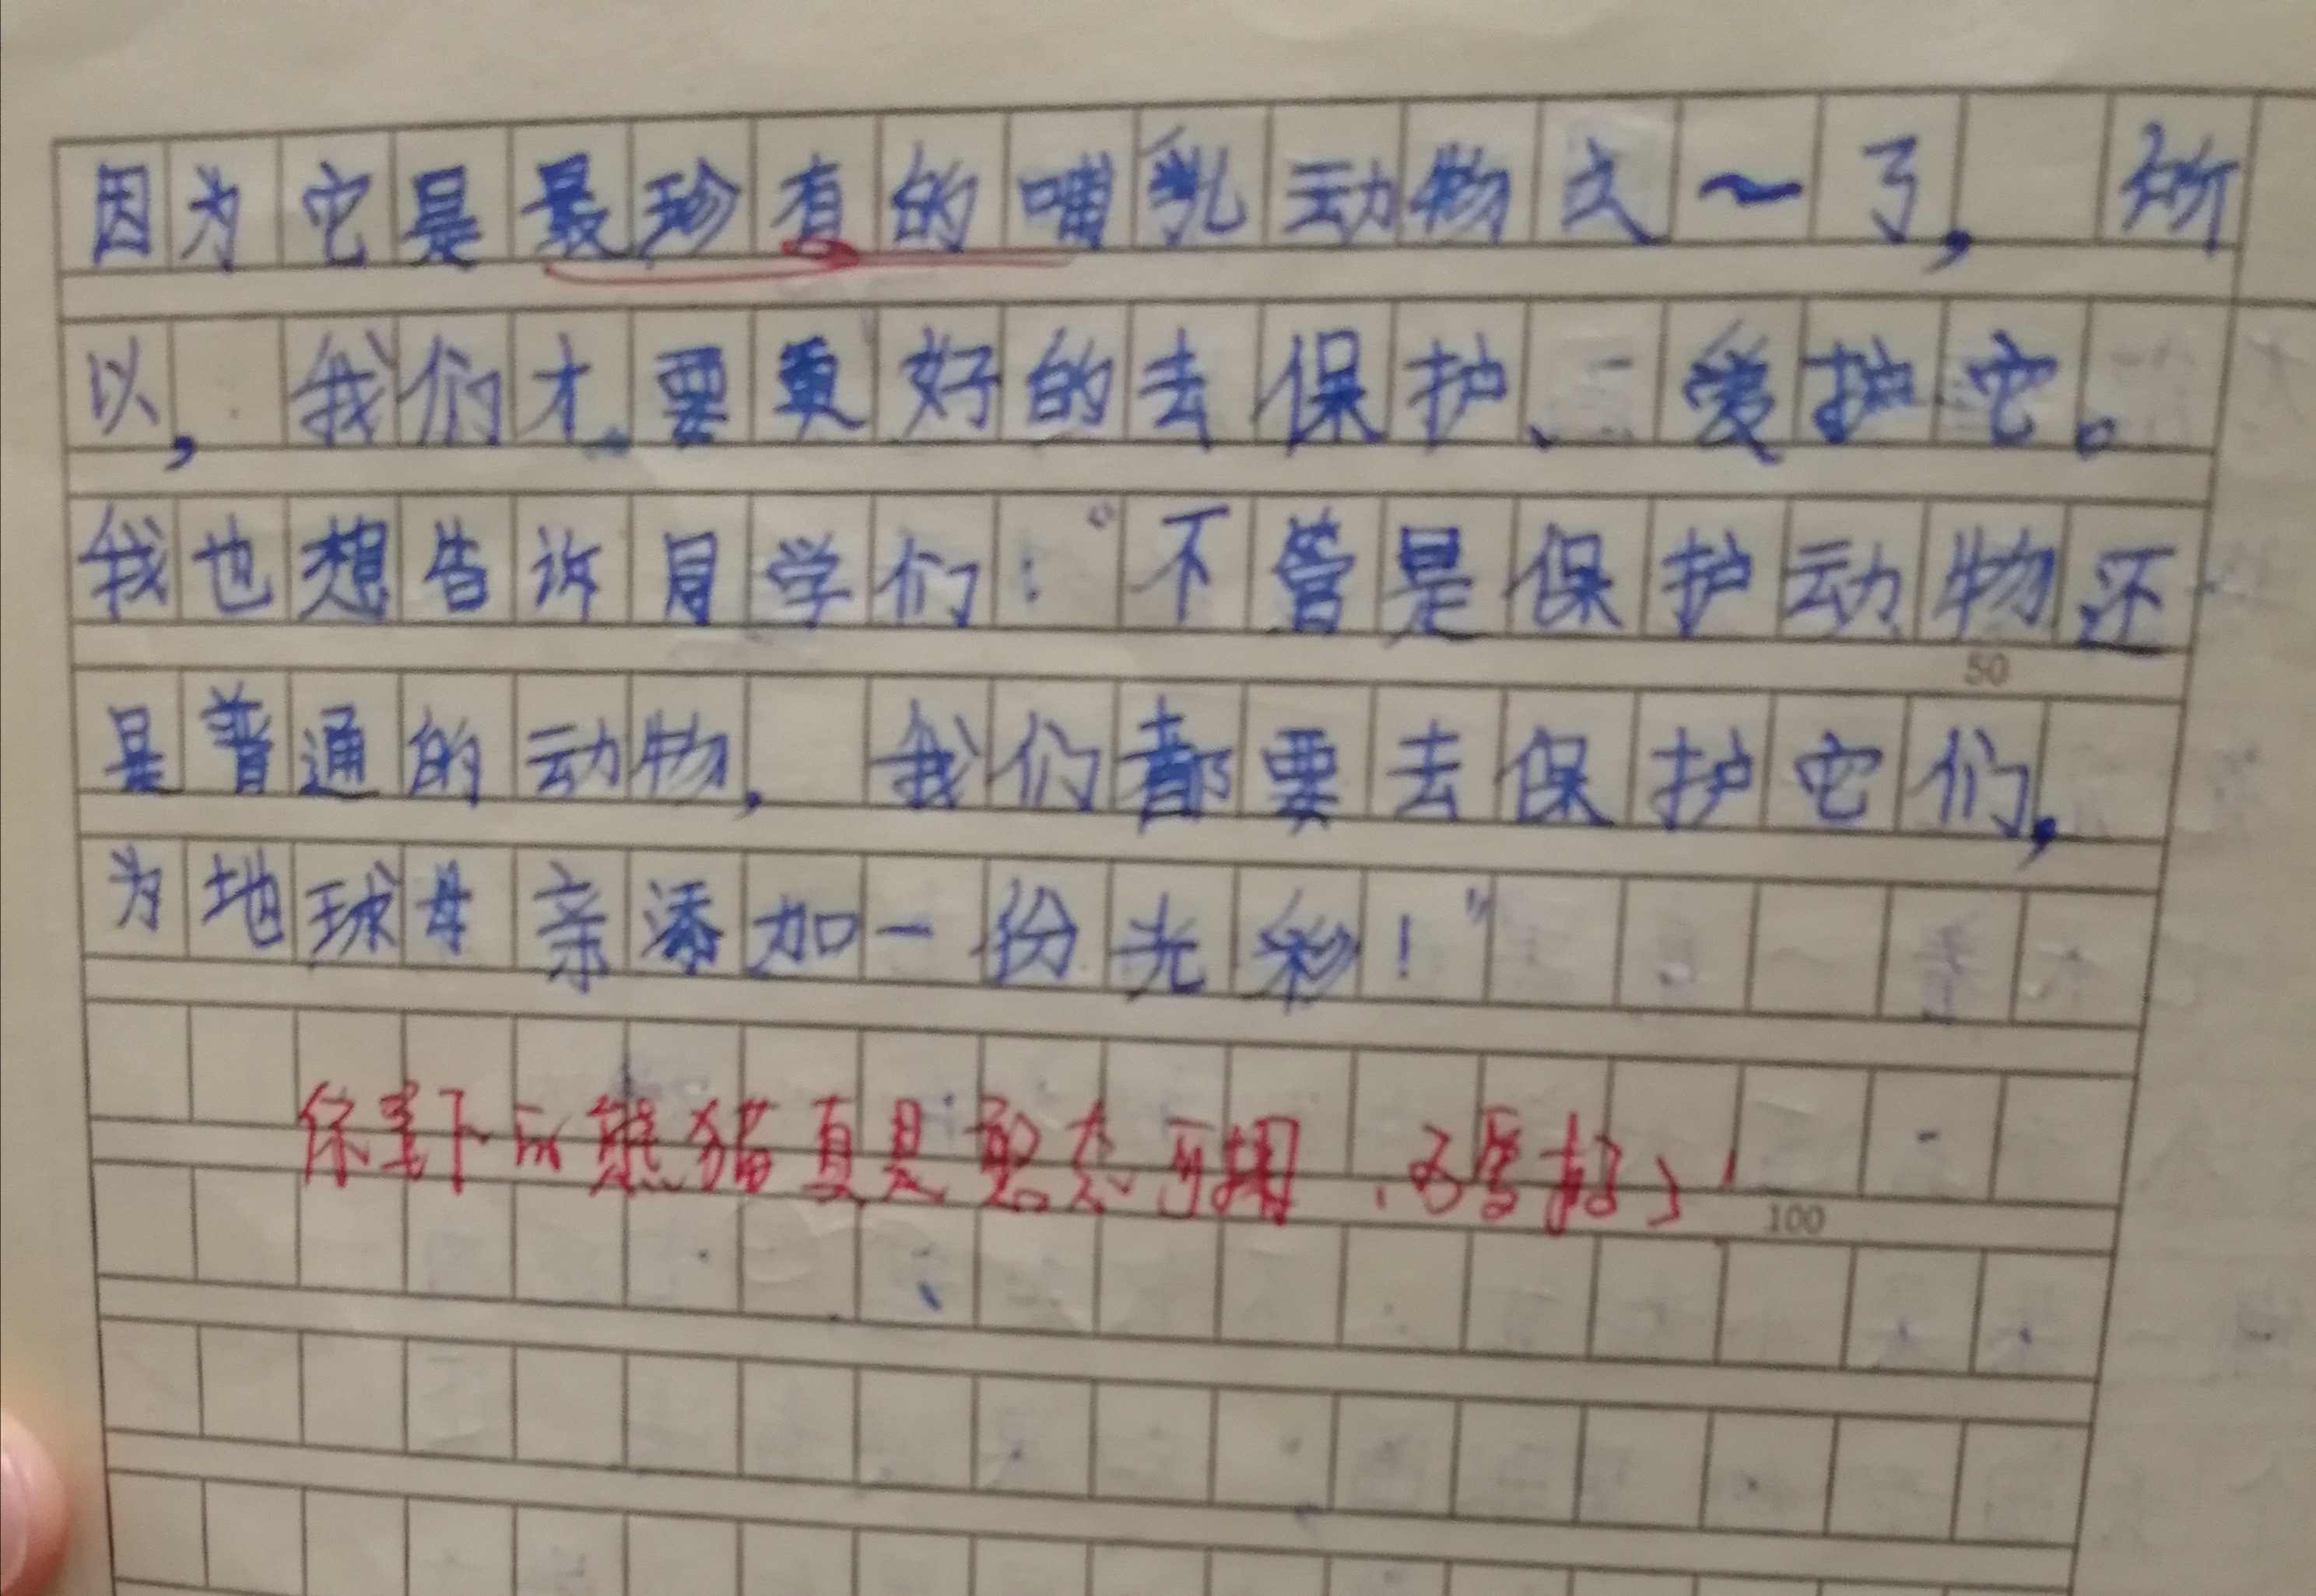 因为它是最珍有的哺乳动物之一了，所
以，我们才要更好的去保护、爱护它。
我也想告诉同学们：“不管是保护动物还
是普通的动物，我们都要去保护它们，
50
为地球母亲添加一份光彩！”
你笔下的熊猫真是憨态可掬，写得好！
100